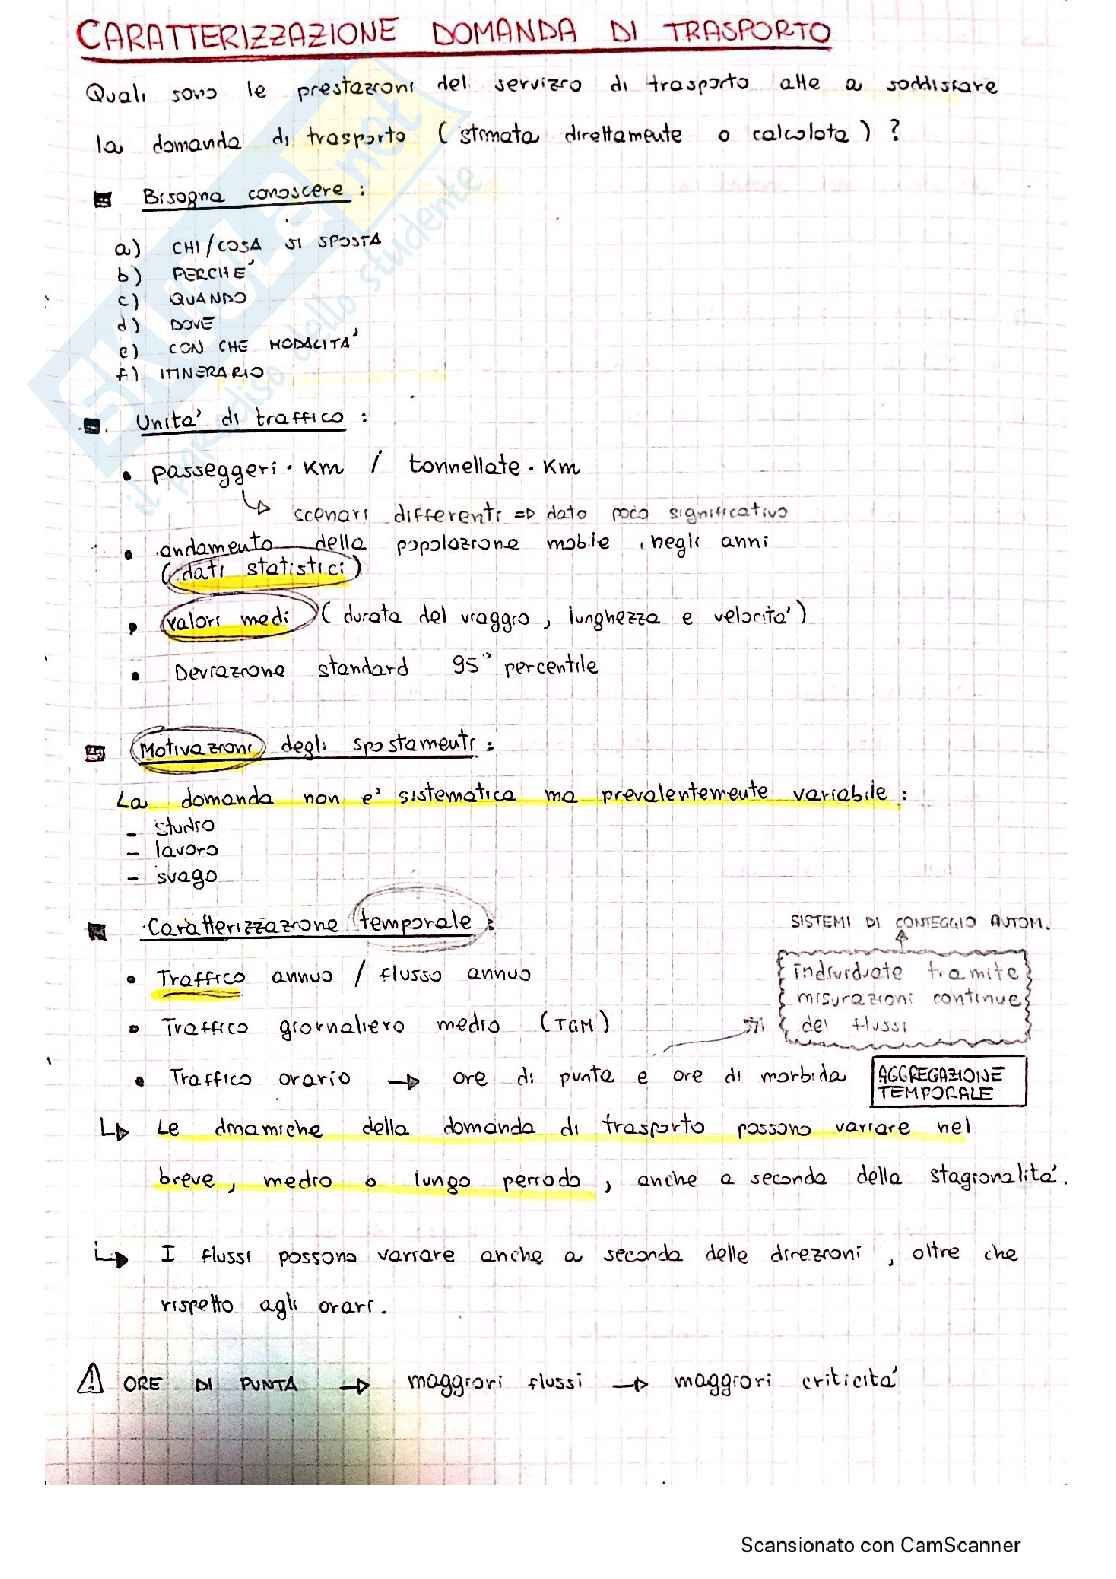 CARATTERIZZAZIONE DOMANDA DI TRASPORTO
Quali sono le prestazioni del servizio di trasporto atte a soddisfare
la domanda di trasporto (stimata direttamente o calcolata) ?
Bisogna conoscere :
a) CHI/COSA SI SPOSTA
b) PERCHE'
c) QUANDO
d) DOVE
e) CON CHE MODALITA'
f) ITINERARIO
Unita' di traffico :
• passeggeri · Km / tonnellate · Km
↳ scenari differenti => dato poco significativo
• andamento della popolazione mobile negli anni
(dati statistici)
• valori medi (durata del viaggio, lunghezza e velocita')
• Deviazione standard 95° percentile
Motivazioni degli spostamenti :
La domanda non e' sistematica ma prevalentemente variabile :
- studio
- lavoro
- svago
Caratterizzazione temporale :
SISTEMI DI CONTEGGIO AUTOM.
individuate tramite
misurazioni continue
dei flussi
• Traffico annuo / flusso annuo
• Traffico giornaliero medio (TGM)
• Traffico orario → ore di punta e ore di morbida
AGGREGAZIONE
TEMPORALE
↳ Le dinamiche della domanda di trasporto possono variare nel
breve, medio o lungo periodo, anche a seconda della stagionalita'.
↳ I flussi possono variare anche a seconda delle direzioni, oltre che
rispetto agli orari.
⚠ ORE DI PUNTA → maggiori flussi → maggiori criticita'
SKUOLA.net
il paradiso dello studente
Scansionato con CamScanner